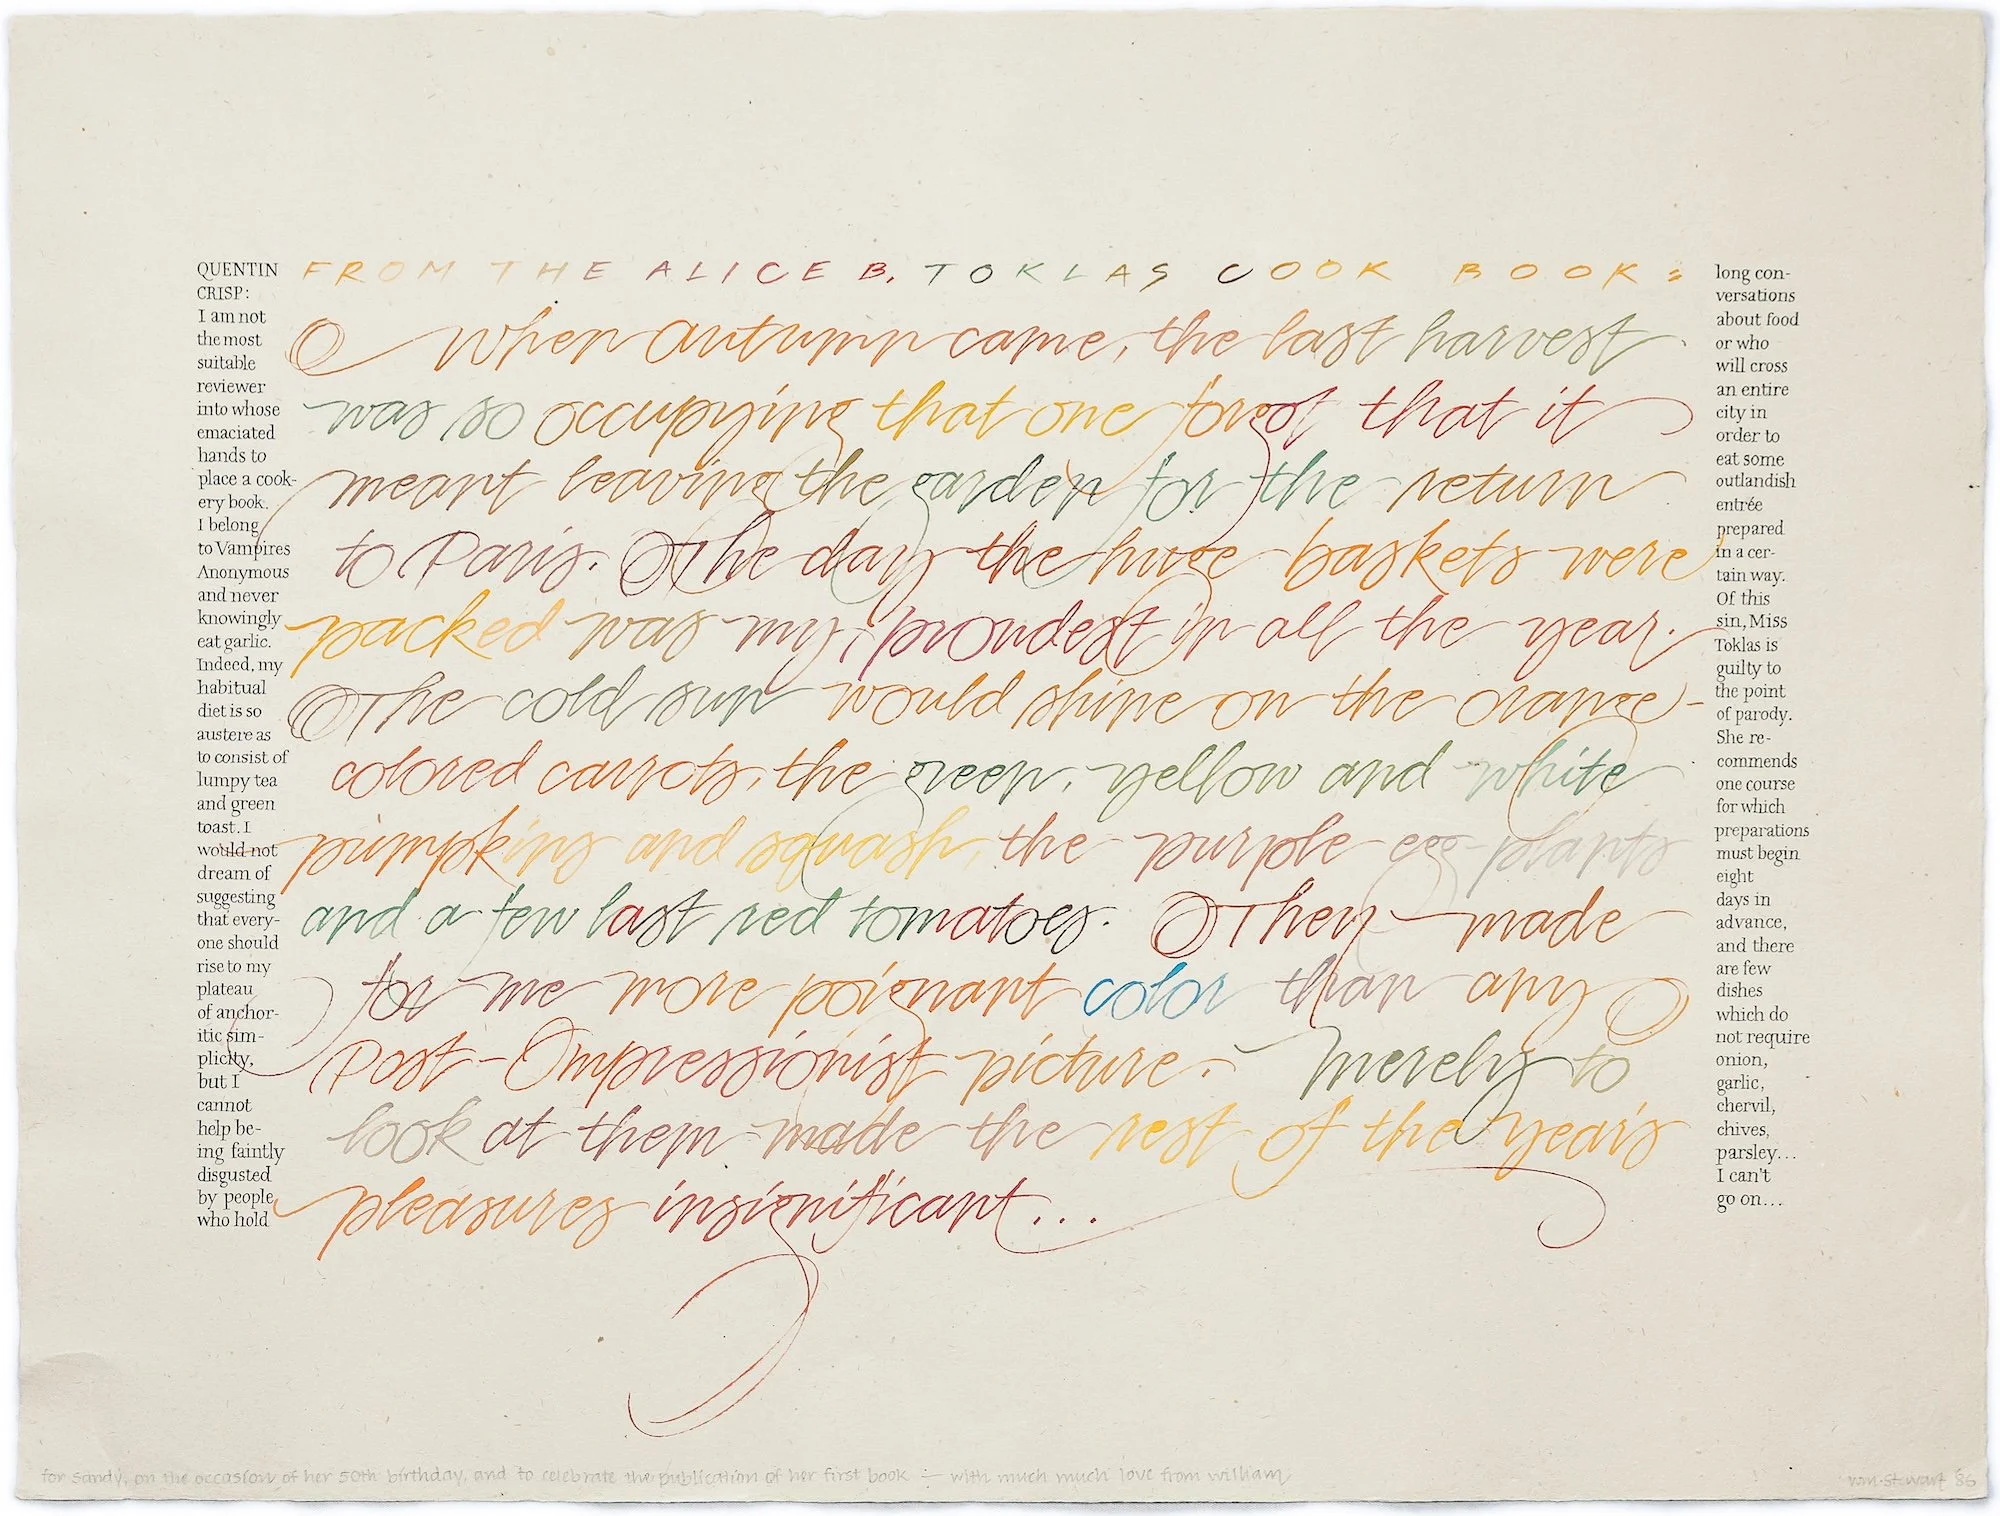 QUENTIN
CRISP:
I am not
the most
suitable
reviewer
into whose
emaciated
hands to
place a cook-
ery book.
I belong
to Vampires
Anonymous
and never
knowingly
eat garlic.
Indeed, my
habitual
diet is so
austere as
to consist of
lumpy tea
and green
toast. I
would not
dream of
suggesting
that every-
one should
rise to my
plateau
of anchor-
itic sim-
plicity,
but I
cannot
help be-
ing faintly
disgusted
by people
who hold
FROM THE ALICE B. TOKLAS COOK BOOK:
When autumn came, the last harvest
was so occupying that one forgot that it
meant leaving the garden for the return
to Paris. The day the huge baskets were
packed was my proudest in all the year.
The cold sun would shine on the orange-
colored carrots, the green, yellow and white
pumpkins and squash, the purple egg-plants
and a few last red tomatoes. They made
for me more poignant color than any
Post-Impressionist picture. Merely to
look at them made the rest of the year's
pleasures insignificant...
long con-
versations
about food
or who
will cross
an entire
city in
order to
eat some
outlandish
entrée
prepared
in a cer-
tain way.
Of this
sin, Miss
Toklas is
guilty to
the point
of parody.
She re-
commends
one course
for which
preparations
must begin
eight
days in
advance,
and there
are few
dishes
which do
not require
onion,
garlic,
chervil,
chives,
parsley...
I can't
go on...
for Sandy, on the occasion of her 50th birthday, and to celebrate the publication of her first book ÷ with much much love from william
wm. stewart '86